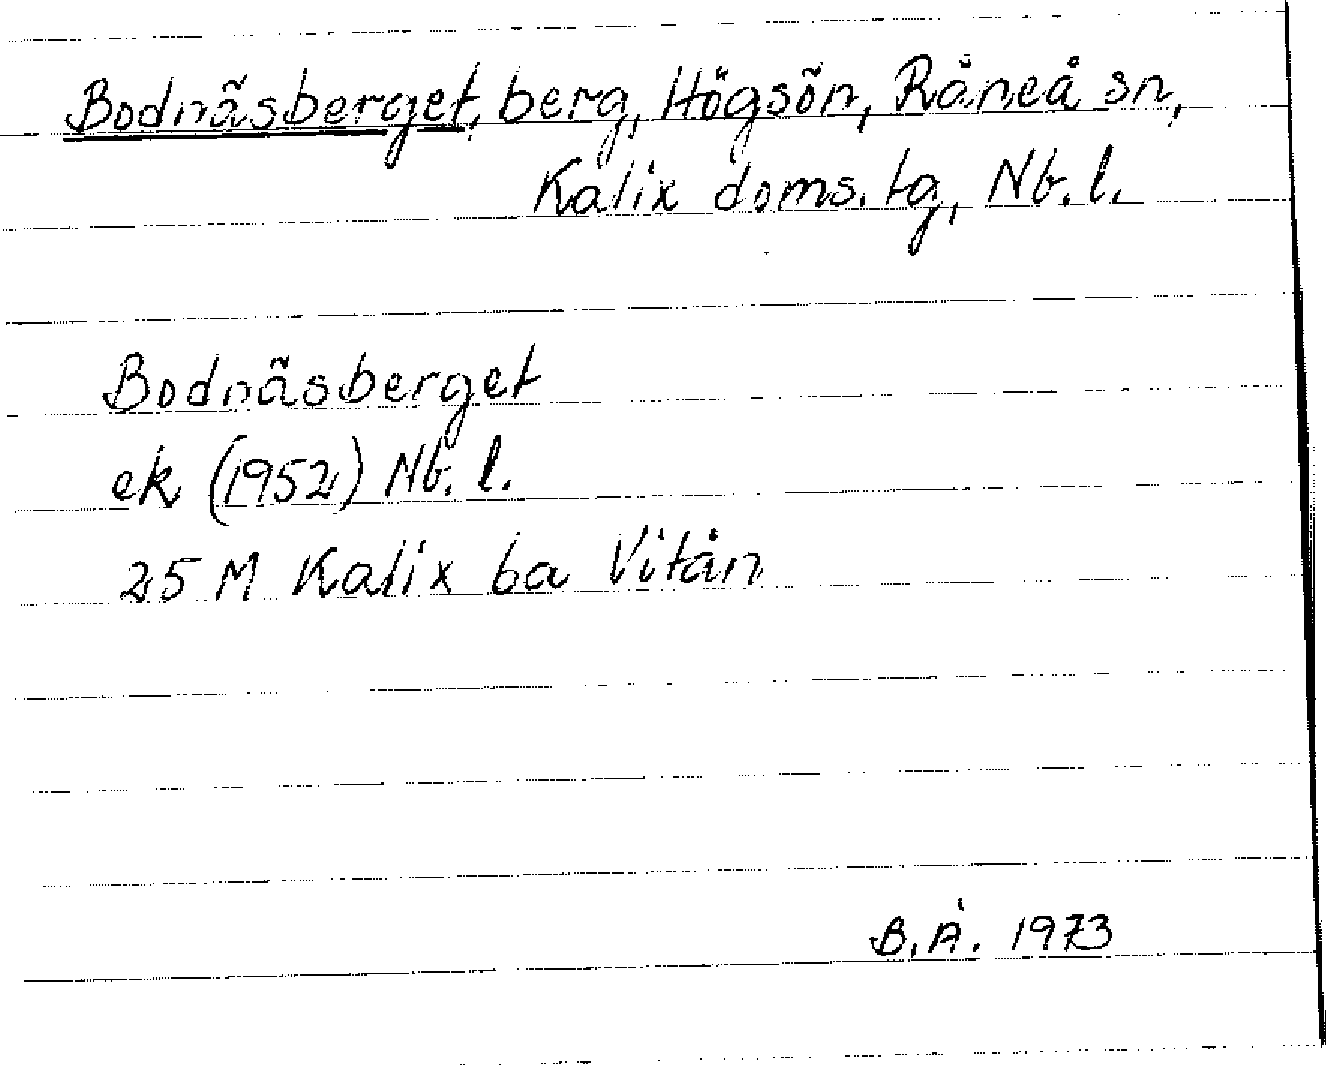 Bodnäsberget, berg, Högsön, Råneå sn,
Kalix doms. tg, Nb. l.
Bodnäsberget
ek (1952) Nb. l.
25 M Kalix ba Vitån
B. Å. 1973